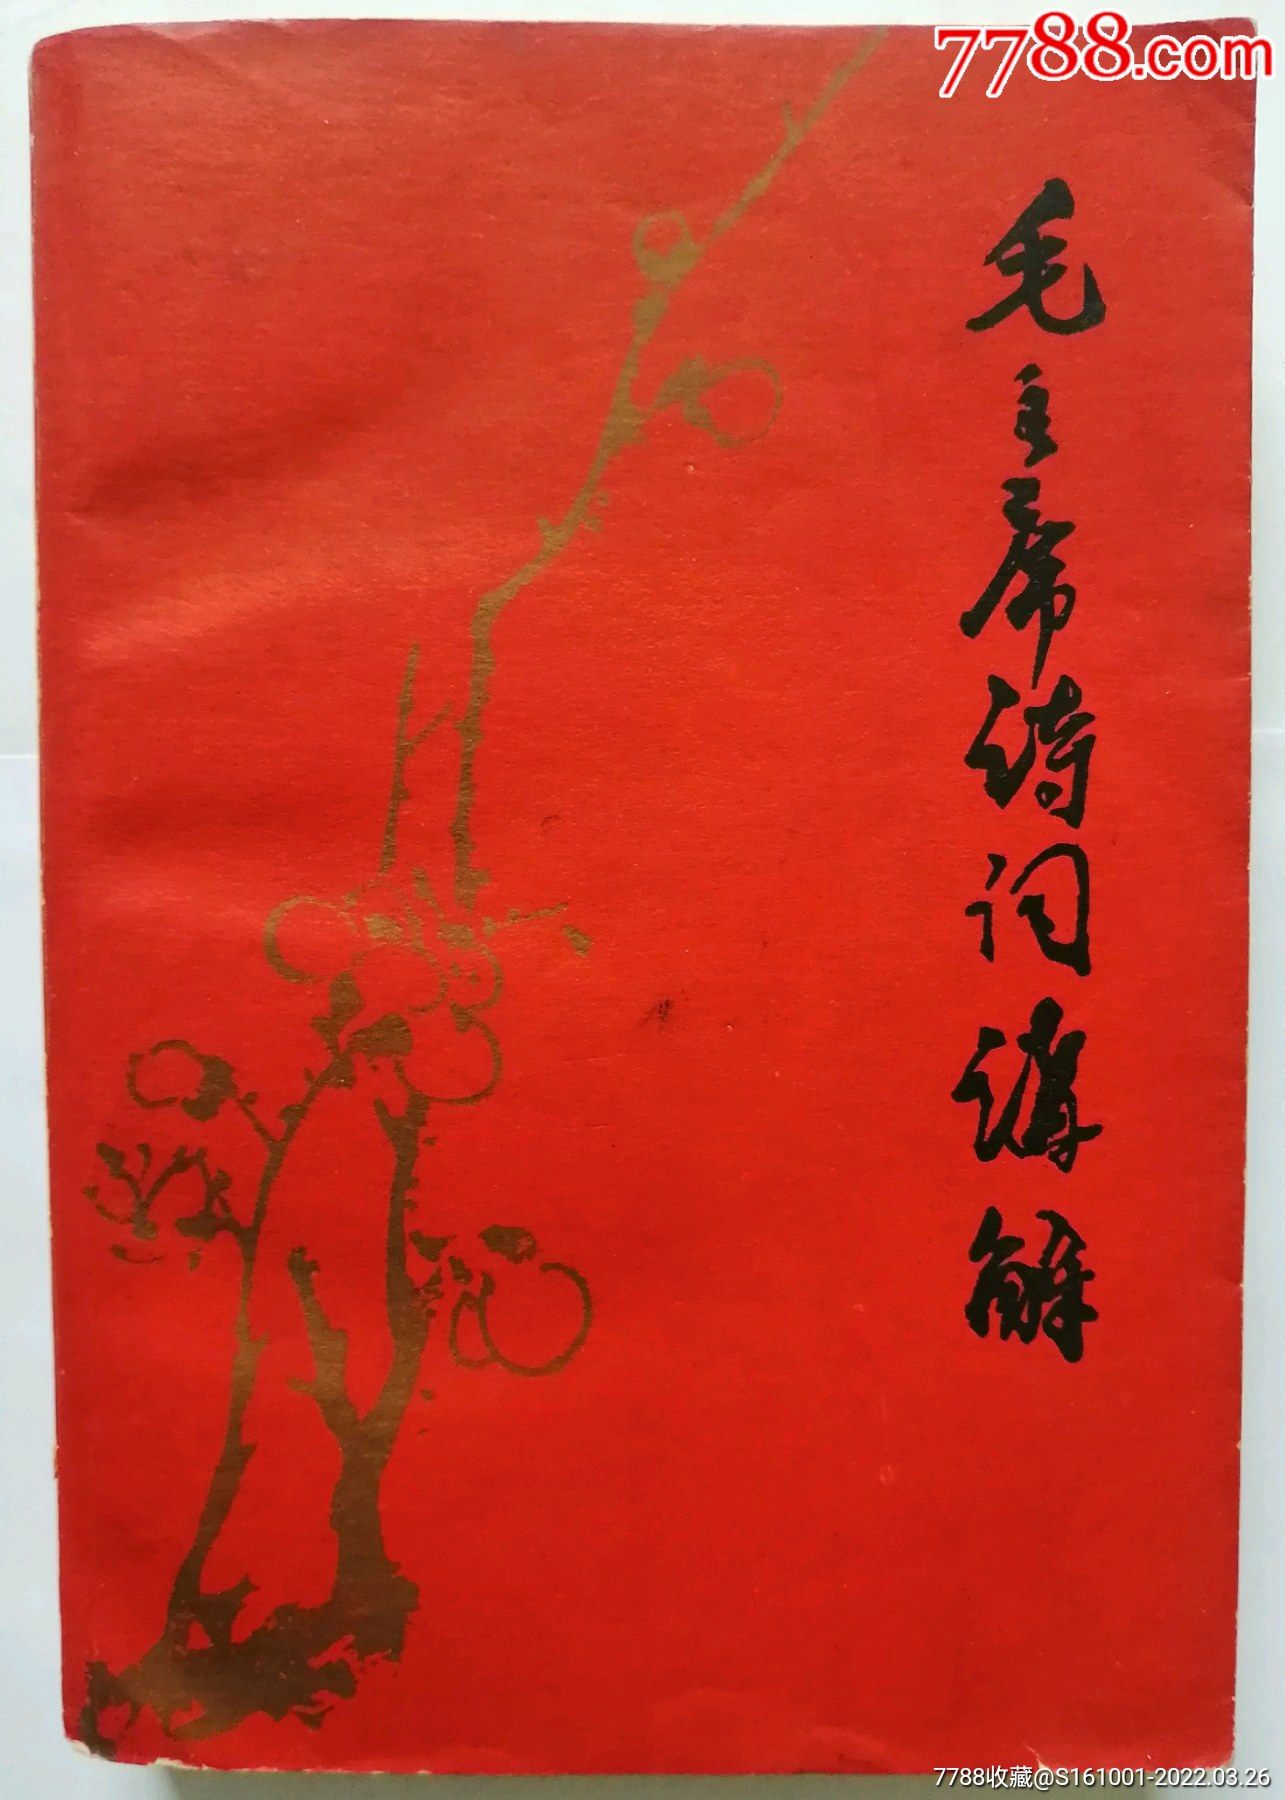 7788.com
毛主席诗词讲解
7788收藏@S161001-2022.03.26